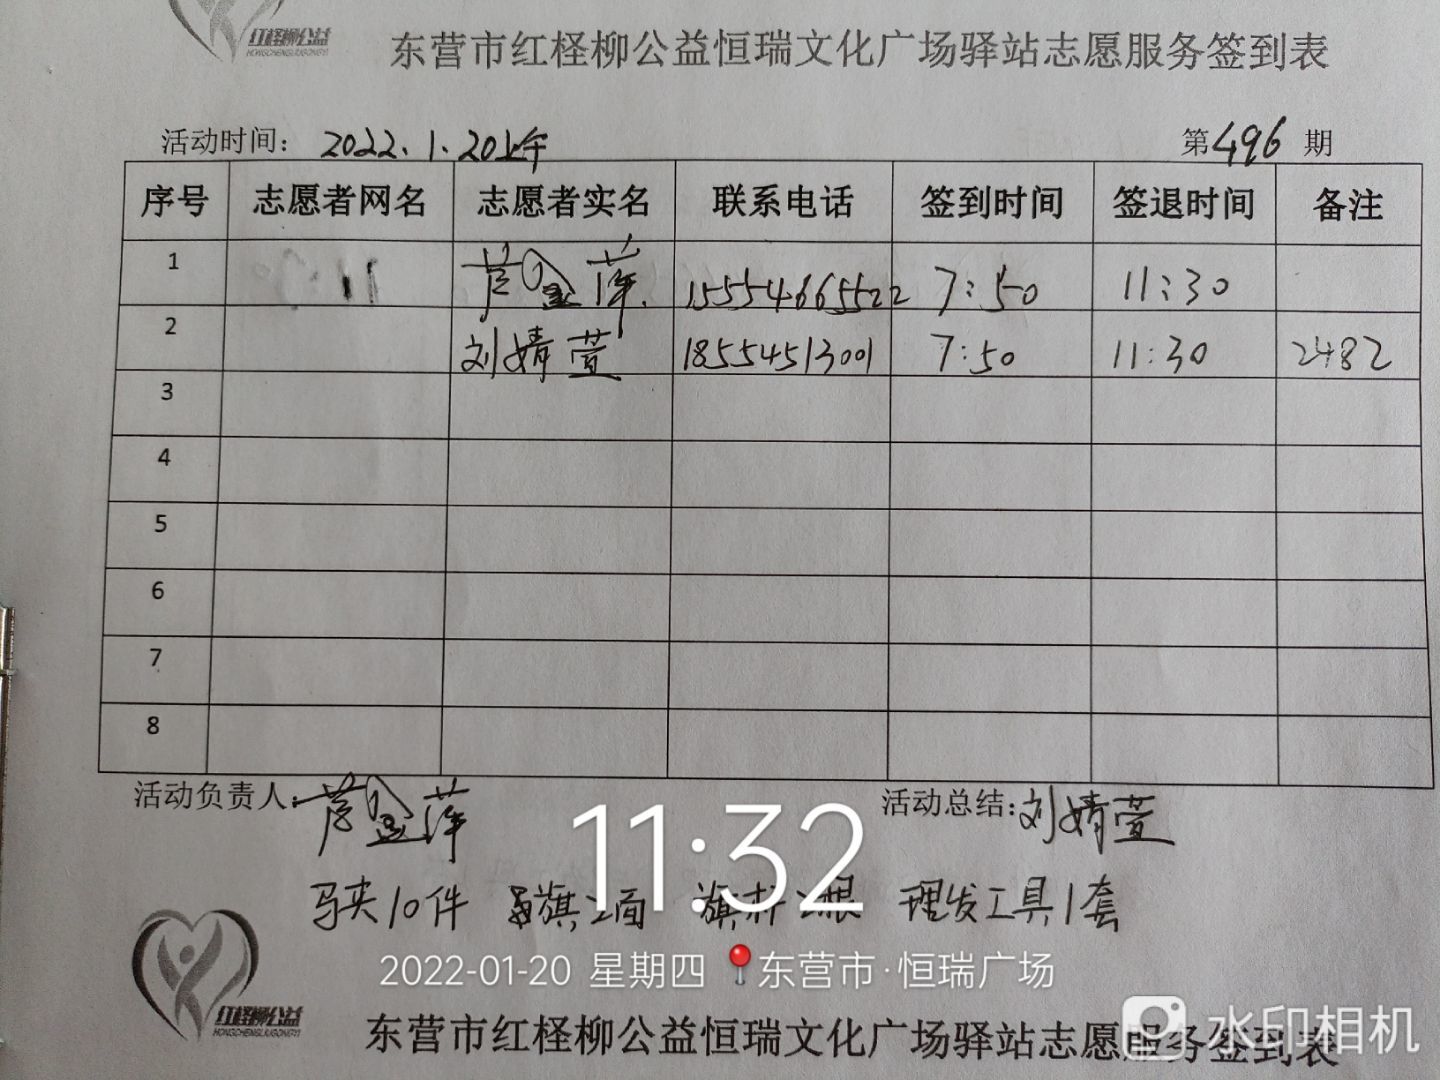 红柽柳公益
HONGCHENGLIUGONGYI
东营市红柽柳公益恒瑞文化广场驿站志愿服务签到表
活动时间: 2022.1.20上午 第496期
序号 志愿者网名 志愿者实名 联系电话 签到时间 签退时间 备注
1 萍 15554665522 7:50 11:30
2 刘婧萱 18554513001 7:50 11:30 2482
3
4
5
6
7
8
活动负责人: 萍 活动总结: 刘婧萱
11:32
马夹10件 旗2面 旗杆2根 理发工具1套
2022-01-20 星期四 东营市·恒瑞广场
红柽柳公益
HONGCHENGLIUGONGYI
东营市红柽柳公益恒瑞文化广场驿站志愿服务签到表
水印相机